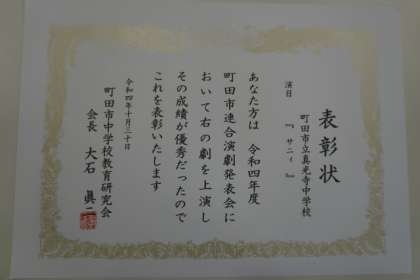 表彰状
町田市立真光寺中学校
演目
『サニィ』
あなた方は 令和四年度
町田市連合演劇発表会に
おいて右の劇を上演し
その成績が優秀だったので
これを表彰いたします
令和四年十月三十日
町田市中学校教育研究会
会長 大石 眞二